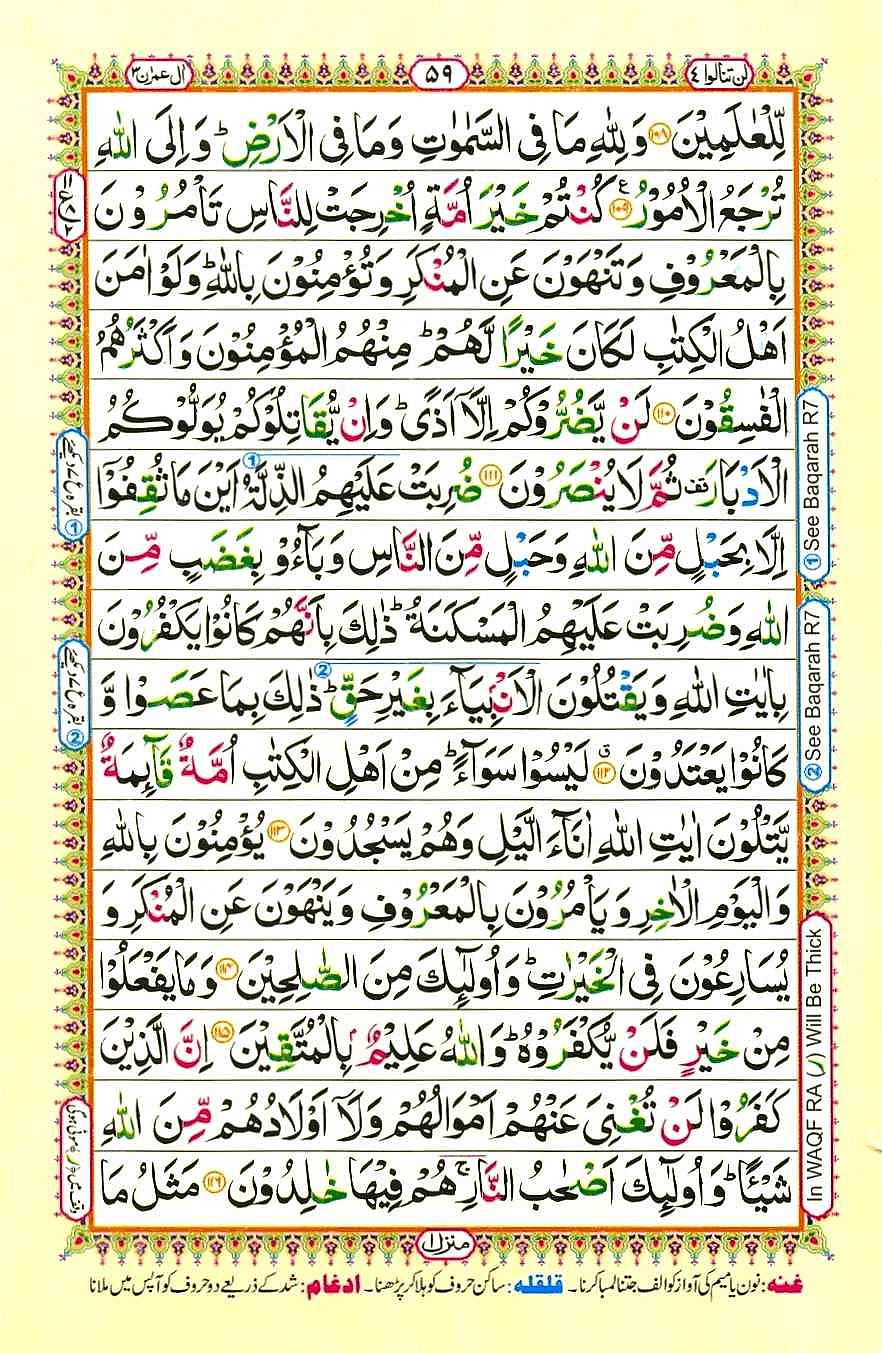 لن تنالوا ٤
٥٩
ال عمرٰن ٣
لِّلْعٰلَمِيْنَ ۝١٠٨ وَلِلّٰهِ مَا فِى السَّمٰوٰتِ وَمَا فِى الْاَرْضِ ؕ وَاِلَى اللّٰهِ
تُرْجَعُ الْاُمُوْرُ ۝١٠٩ ع كُنْتُمْ خَيْرَ اُمَّةٍ اُخْرِجَتْ لِلنَّاسِ تَاْمُرُوْنَ
بِالْمَعْرُوْفِ وَتَنْهَوْنَ عَنِ الْمُنْكَرِ وَتُؤْمِنُوْنَ بِاللّٰهِ ؕ وَلَوْ اٰمَنَ
اَهْلُ الْكِتٰبِ لَكَانَ خَيْرًا لَّهُمْ ؕ مِنْهُمُ الْمُؤْمِنُوْنَ وَاَكْثَرُهُمُ
الْفٰسِقُوْنَ ۝١١٠ لَنْ يَّضُرُّوْكُمْ اِلَّاۤ اَذًى ؕ وَاِنْ يُّقَاتِلُوْكُمْ يُوَلُّوْكُمُ
الْاَدْبَارَ قف ثُمَّ لَا يُنْصَرُوْنَ ۝١١١ ضُرِبَتْ عَلَيْهِمُ الذِّلَّةُ اَيْنَ مَا ثُقِفُوْۤا
اِلَّا بِحَبْلٍ مِّنَ اللّٰهِ وَحَبْلٍ مِّنَ النَّاسِ وَبَآءُوْ بِغَضَبٍ مِّنَ
اللّٰهِ وَضُرِبَتْ عَلَيْهِمُ الْمَسْكَنَةُ ؕ ذٰلِكَ بِاَنَّهُمْ كَانُوْا يَكْفُرُوْنَ
بِاٰيٰتِ اللّٰهِ وَيَقْتُلُوْنَ الْاَنْۢبِيَآءَ بِغَيْرِ حَقٍّ ؕ ذٰلِكَ بِمَا عَصَوْا وَّ
كَانُوْا يَعْتَدُوْنَ ۝١١٢ ق لَيْسُوْا سَوَآءً ؕ مِنْ اَهْلِ الْكِتٰبِ اُمَّةٌ قَآئِمَةٌ
يَّتْلُوْنَ اٰيٰتِ اللّٰهِ اٰنَآءَ الَّيْلِ وَهُمْ يَسْجُدُوْنَ ۝١١٣ يُؤْمِنُوْنَ بِاللّٰهِ
وَالْيَوْمِ الْاٰخِرِ وَيَاْمُرُوْنَ بِالْمَعْرُوْفِ وَيَنْهَوْنَ عَنِ الْمُنْكَرِ وَ
يُسَارِعُوْنَ فِى الْخَيْرٰتِ ؕ وَاُولٰٓئِكَ مِنَ الصّٰلِحِيْنَ ۝١١٤ وَمَا يَفْعَلُوْا
مِنْ خَيْرٍ فَلَنْ يُّكْفَرُوْهُ ؕ وَاللّٰهُ عَلِيْمٌۢ بِالْمُتَّقِيْنَ ۝١١٥ اِنَّ الَّذِيْنَ
كَفَرُوْا لَنْ تُغْنِىَ عَنْهُمْ اَمْوَالُهُمْ وَلَاۤ اَوْلَادُهُمْ مِّنَ اللّٰهِ
شَيْئًا ؕ وَاُولٰٓئِكَ اَصْحٰبُ النَّارِ ۚ هُمْ فِيْهَا خٰلِدُوْنَ ۝١١٦ مَثَلُ مَا
① See Baqarah R7
② See Baqarah R7
In WAQF RA (ر) Will Be Thick
بقرہ ع ٧ دیکھئے ①
بقرہ ع ٧ دیکھئے ②
منزل ١
غنہ: نون یا میم کی آواز کو الف جتنا لمبا کرنا۔ قلقلہ: ساکن حروف کو ہلا کر پڑھنا۔ ادغام: شد کے ذریعے دو حروف کو آپس میں ملانا